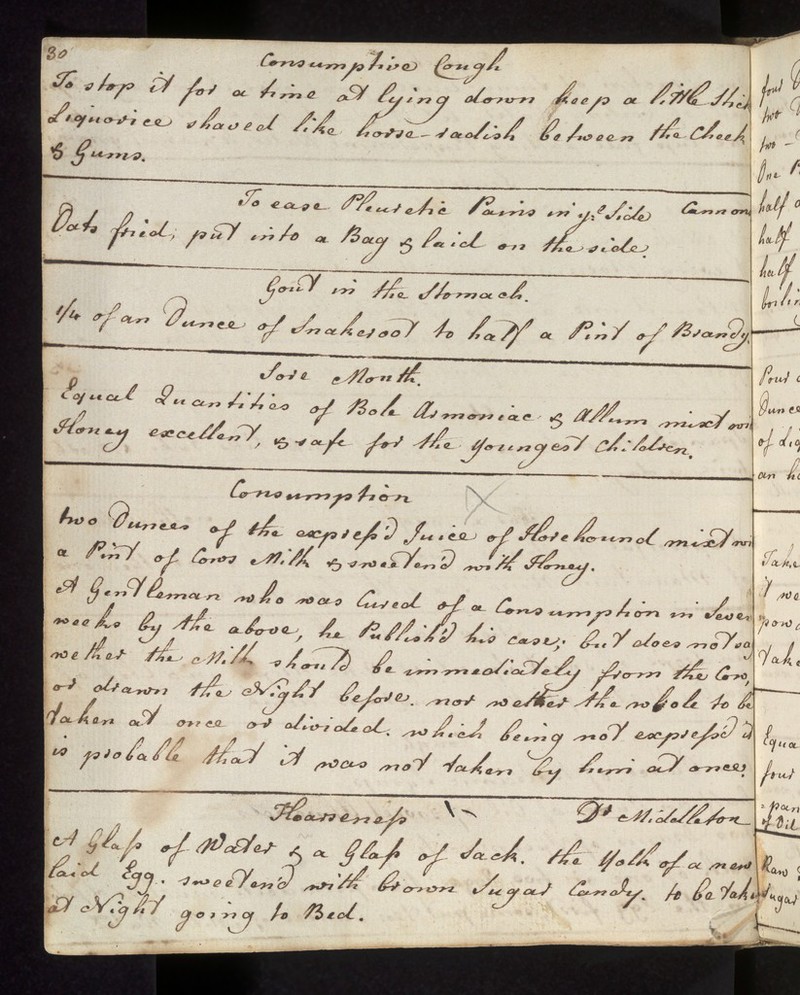 30
Consumptive Cough
To stop it for a time at lying down keep a little Stick
Liquorice shaved like horse-radish between the Cheek
& Gums.
To ease Pleuretic Pains in ye. Side Cannon
Oats fried, put into a Bag & laid on the side.
Gout in the Stomach.
1/4 of an Ounce of Snakeroot to half a Pint of Brandy.
Sore Mouth.
Equal Quantities of Bole Armoniac & Allum mixt
Honey excellent, & safe for the youngest Children.
Consumption
two Ounces of the express'd Juice of Horehound mixt
a Pint of Cows Milk & sweeten'd with Honey.
A Gentleman who was Cured of a Consumption in Seven
weeks by the above, he Publish'd his case; but does not
wether the Milk should be immediately from the Cow,
or drawn the Night before. nor wether the whole to be
taken at once or divided. which being not express'd it
is probable that it was not taken by him at once.
Hoarseness Dr Middleton
A Glass of Water & a Glass of Sack. the Yolk of a new
laid Egg. sweeten'd with brown Sugar Candy. to be
at Night going to Bed.
four
two
two -
One
half
half
half
Pour
Ounce
of
an
Take
it
Take
Equa
four
of Oil
Raw
Sugar